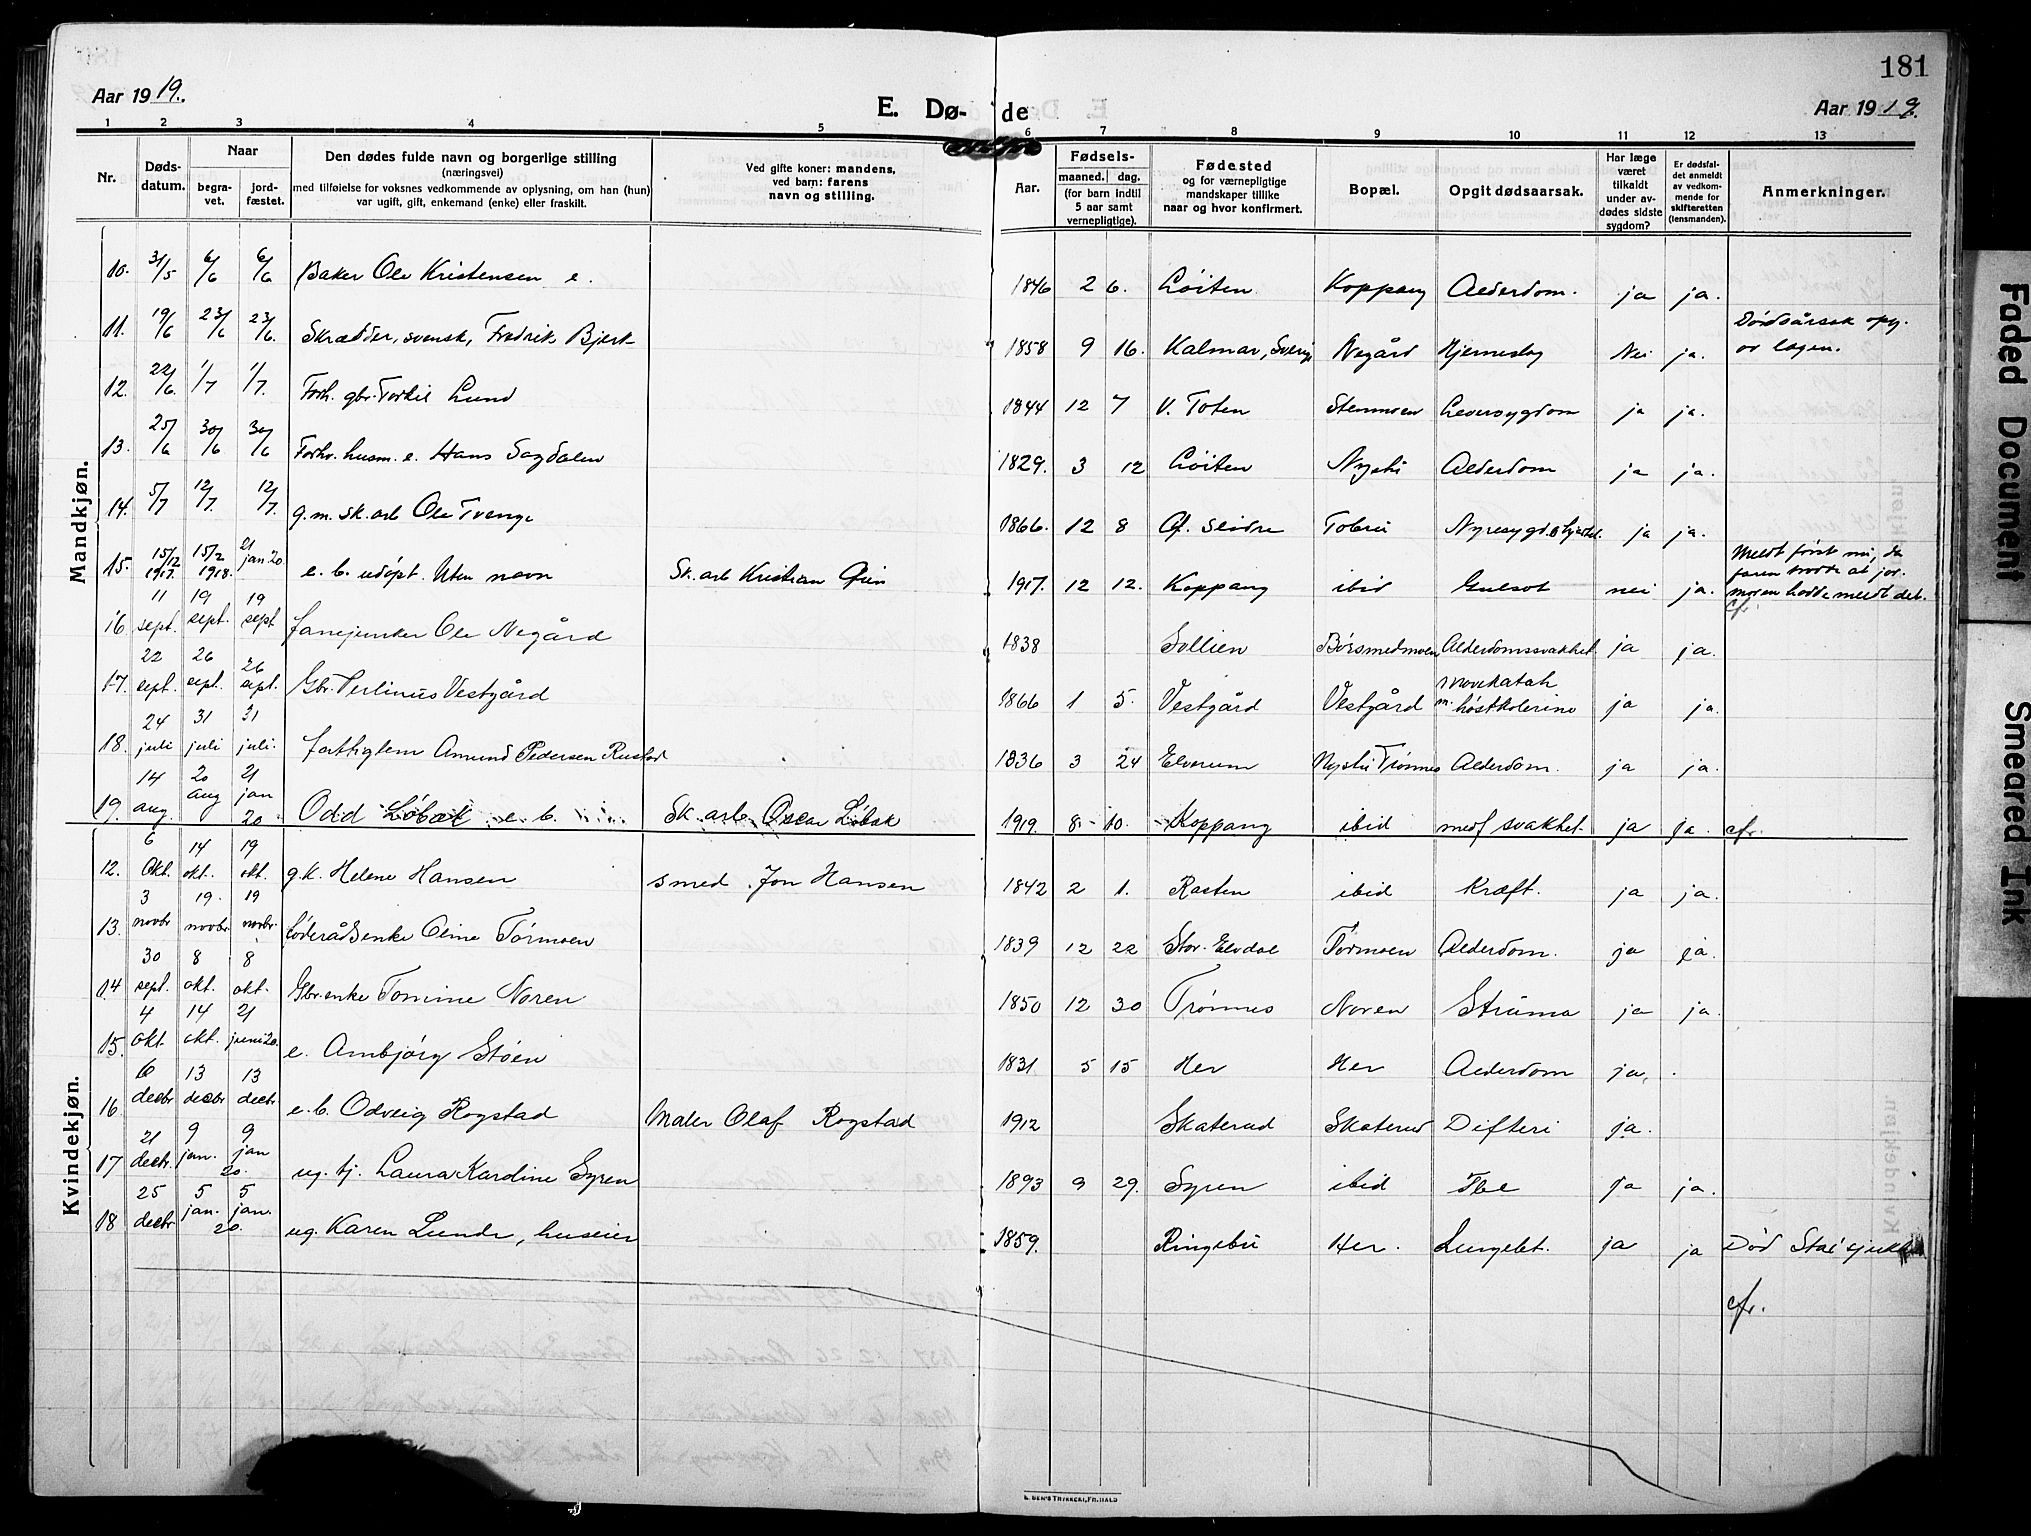 181
Aar 1919.
E. Dø-
de
Aar 1919.
1 2 3 4 5 6 7 8 9 10 11 12 13
Nr.
Døds-
datum.
Naar
begra-
vet.
jord-
fæstet.
Den dødes fulde navn og borgerlige stilling
(næringsvei)
med tilføielse for voksnes vedkommende av oplysning, om han (hun)
var ugift, gift, enkemand (enke) eller fraskilt.
Ved gifte koner: mandens,
ved barn: farens
navn og stilling.
Aar.
Fødsels-
maaned. dag.
(for barn indtil
5 aar samt
vernepligtige).
Fødested
og for værnepligtige
mandskaper tillike
naar og hvor konfirmert.
Bopæl.
Opgit dødsaarsak.
Har læge
været
tilkaldt
under av-
dødes sidste
sygdom?
Er dødsfal-
det anmeldt
av vedkom-
mende for
skifteretten
(lensmanden).
Anmerkninger.
Mandkjøn.
10. 31/5 6/6 6/6 Baker Ole Kristensen e. 1846 2 6. Löiten. Koppang Alderdom. ja ja.
11. 19/6 23/6 23/6. Skrædder, svensk, Fredrik Bjerk 1858 9 16. Kalmar, Sverig Negård Hjerneslag Nei ja. Dödsårsak opg.
av lægen.
12. 22/6. 1/7 1/7. Forh. gbr. Torkil Lund 1844 12 7 V. Toten Stenmoen Leversygdom ja ja.
13. 25/6 30/6 30/6 Forhv. husm. e. Hans Sagdalen 1829. 3 12 Löiten Nystu Alderdom ja ja.
14. 5/7 12/7. 12/7. g.m. sk.arb Ole Tvenge 1866. 12 8 Ø. Slidre Tobru Nyresygd. & hjertel. ja ja.
15. 15/12 1917. 15/2 1918. 21 jan. 20 e. b. udöpt. Uten navn Sk. arb Kristian Grin 1917. 12 12. Koppang ibid Gulsot nei ja. Meldt först nu, da
faren trodde at jor.
moren hadde meldt det.
cfr.
16 11 sept. 19 sept. 19 sept fanejunker Ole Negård 1838 Sollien Børsmedmoen Alderdomssvakhet. ja ja.
17. 22 sept. 26 sept. 26 sept. Gbr. Perlinus Vestgård 1866 1 5. Vestgård Vestgård mavekatarh
m. höstkolerine ja ja.
18. 24 juli 31 juli 31 juli. fattiglem Amund Pedersen Rustad 1836 3 24 Elverum Nystu Trønnes Alderdom. ja ja.
19. 14 aug. 20 aug 21 jan 20 Odd Løbak e. b. Sk. arb Oscar Løbak 1919. 8 10. Koppang ibid medf svakhet. ja ja. cfr.
Kvindekjøn.
12. 6 Okt. 14 okt. 19 okt. g.k. Helene Hansen smed Jon Hansen 1842 2 1. Rasten ibid Kræft. ja ja.
13. 3 novbr 19. novbr. 19 novbr. föderådsenke Oline Törmoen 1839 12 22 Stor-Elvdal Tormoen Alderdom. ja ja.
14 30 sept. 8 okt. 8 okt. Gbr.enke Tonnine Noren 1850 12 30 Trønnes Noren Struma ja ja.
15. 4 okt. 14 okt. 21 juni 20. e. Ambjörg Stöen 1831. 5 15 Her Her Alderdom ja.
16 6 decbr 13 decbr 13 decbr e. b. Odveig Rogstad Maler Olaf Rogstad 1912 Skaterud Skaterud Difteri ja.
17 21 decbr. 9 jan. 9 jan 20. ug. tj. Laura Kardine Syren 1893 9 29. Syren ibid Tbc ja ja.
18 25 decbr 5 jan. 5 jan. 20. ug. Karen Lunde, huseier 1859. Ringebu Her. Lungebet. ja ja Död Stai sjukeh
cfr.
Faded Document
Smeared Ink